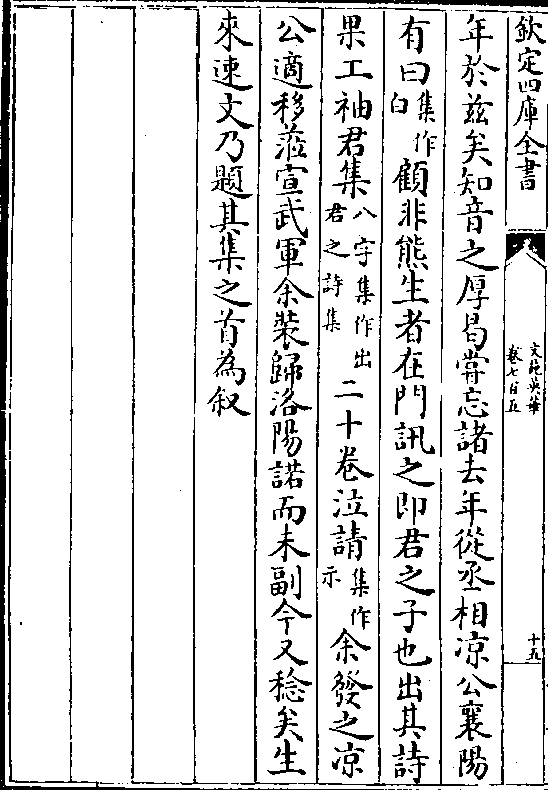 欽定四庫全書
文苑英華
卷七百五
十五
年於兹矣知音之厚曷嘗忘諸去年從丞相凉公襄陽
有曰集作白顧非熊生者在門訊之即君之子也出其詩
果工袖君集八字集作出君之詩集二十卷泣請集作示余發之凉
公適移蒞宣武軍余裝歸洛陽諾而未副今又稔矣生
來速文乃題其集之首為叙